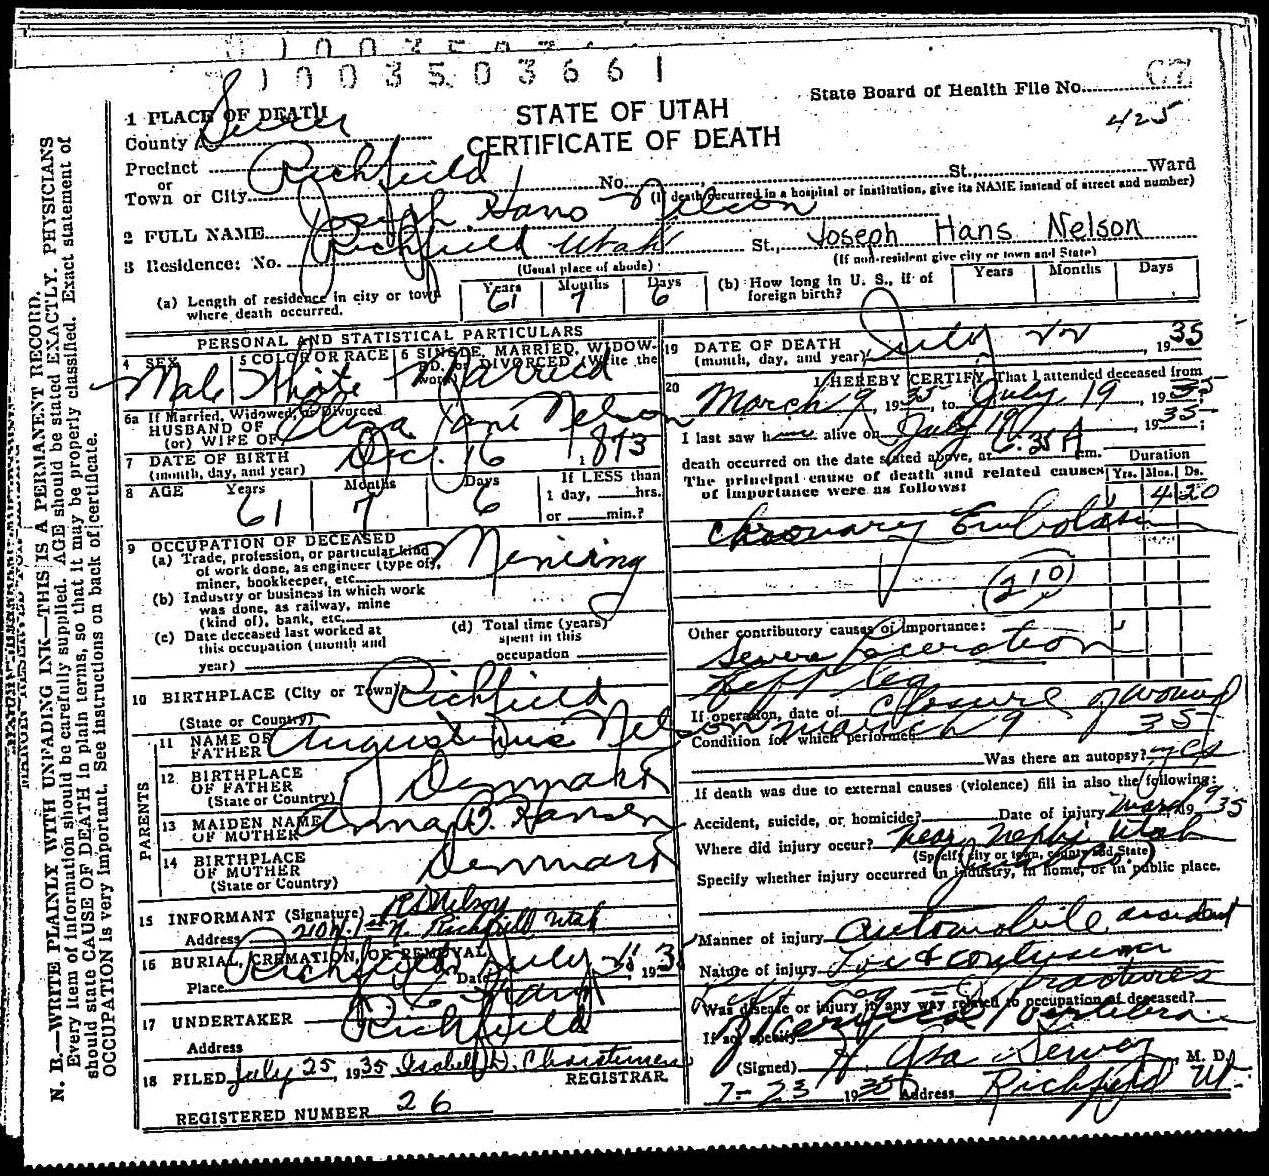 1003503661
State Board of Health File No. 67
425
STATE OF UTAH
CERTIFICATE OF DEATH
1 PLACE OF DEATH
County Sevier
Precinct
or
Town or City Richfield No. St., Ward
(If death occurred in a hospital or institution, give its NAME instead of street and number)
2 FULL NAME Joseph Hans Nelson
Joseph Hans Nelson
3 Residence: No. Richfield Utah St.,
(Usual place of abode) (If non-resident give city or town and State)
(a) Length of residence in city or town where death occurred. Years 61 Months 7 Days 6
(b) How long in U. S., if of foreign birth? Years Months Days
PERSONAL AND STATISTICAL PARTICULARS
4 SEX Male
5 COLOR OR RACE White
6 SINGLE, MARRIED, WIDOWED, or DIVORCED (Write the word) Married
6a If Married, Widowed, or Divorced
HUSBAND OF
(or) WIFE OF Eliza Jane Nelson
7 DATE OF BIRTH
(month, day, and year) Dec. 16 1873
8 AGE Years 61 Months 7 Days 6 If LESS than 1 day, hrs. or min.?
9 OCCUPATION OF DECEASED
(a) Trade, profession, or particular kind of work done, as engineer (type of), miner, bookkeeper, etc. Mining
(b) Industry or business in which work was done, as railway, mine (kind of), bank, etc.
(c) Date deceased last worked at this occupation (month and year)
(d) Total time (years) spent in this occupation
10 BIRTHPLACE (City or Town) Richfield
(State or Country)
PARENTS
11 NAME OF FATHER Augustinus Nelson
12 BIRTHPLACE OF FATHER
(State or Country) Denmark
13 MAIDEN NAME OF MOTHER Anna B. Hansen
14 BIRTHPLACE OF MOTHER
(State or Country) Denmark
15 INFORMANT (Signature) Nelson
Address Richfield Utah
16 BURIAL, CREMATION, OR REMOVAL
Place Richfield Date July 193
17 UNDERTAKER
Address Richfield
18 FILED July 25, 1935 Isabell D. Christensen
REGISTRAR.
REGISTERED NUMBER 26
19 DATE OF DEATH
(month, day, and year) July 22, 1935
20 I HEREBY CERTIFY, That I attended deceased from
March 9, 1935, to July 19, 1935
I last saw h alive on July 19, 1935;
death occurred on the date stated above, at 6:35 A m.
The principal cause of death and related causes of importance were as follows:
Duration Yrs. Mos. Ds.
4 20
Embolism
210
Other contributory causes of importance:
Severe Laceration
Left leg
If operation, date of closure of wound
Condition for which performed March 9 35
Was there an autopsy? yes
If death was due to external causes (violence) fill in also the following:
Accident, suicide, or homicide? Date of injury March 9, 1935
Where did injury occur? near Nephi Utah
(Specify city or town, county and State)
Juab Co.)
Specify whether injury occurred in industry, in home, or in public place.
Manner of injury Automobile accident
Nature of injury contusions
fractures
Was disease or injury in any way related to occupation of deceased?
If so, specify
(Signed) M. D.
7-23 1935 Address Richfield Ut.
N. B.—WRITE PLAINLY WITH UNFADING INK—THIS IS A PERMANENT RECORD.
Every item of information should be carefully supplied. AGE should be stated EXACTLY. PHYSICIANS
should state CAUSE OF DEATH in plain terms, so that it may be properly classified. Exact statement of
OCCUPATION is very important. See instructions on back of certificate.